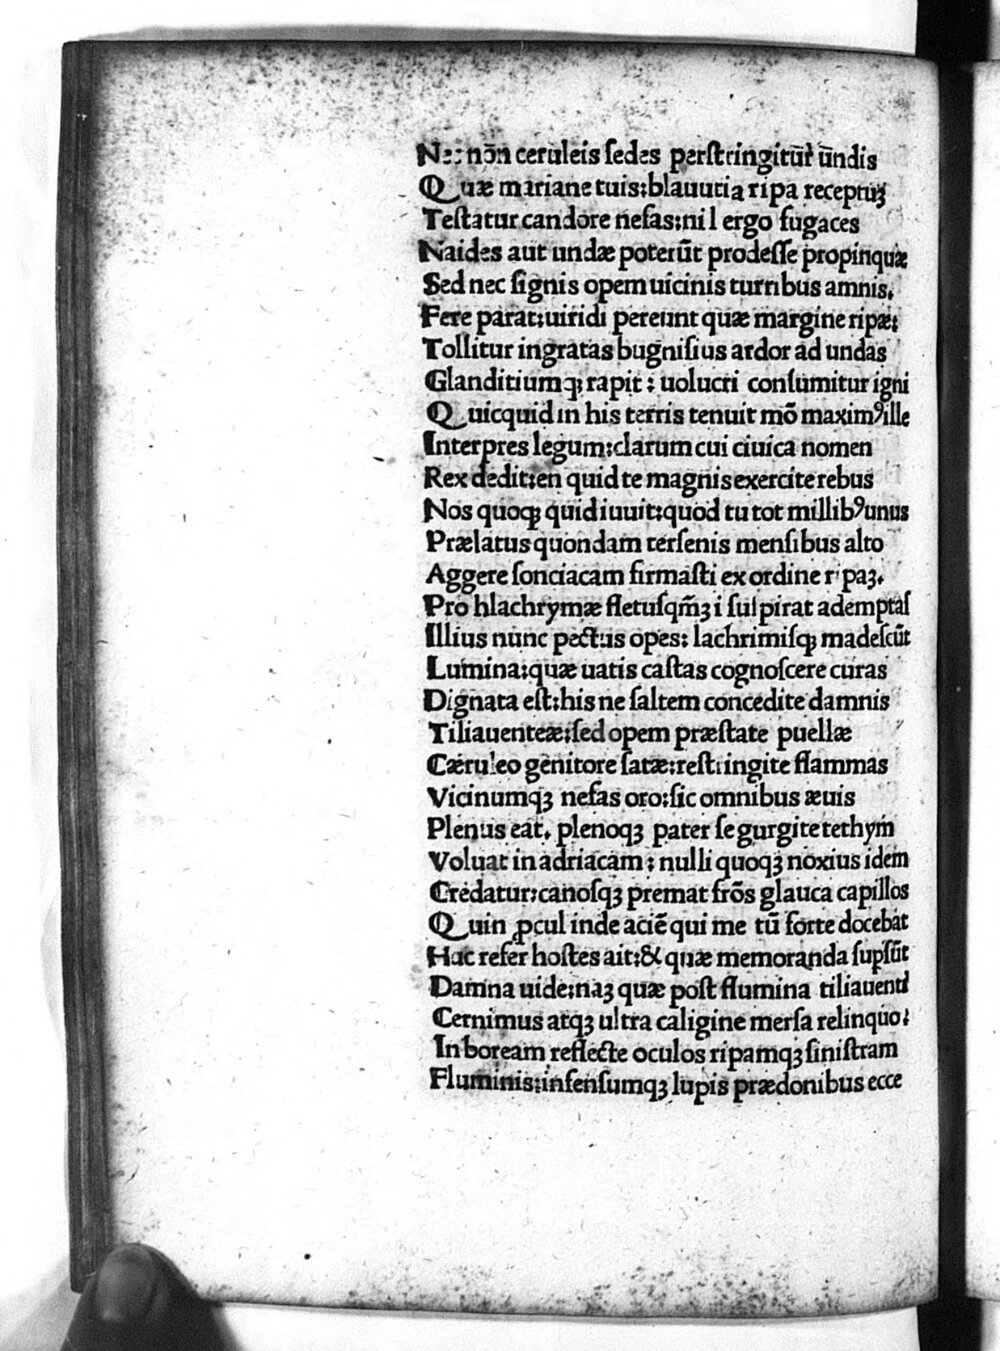 Nec nō̄n ceruleis ſedes perſtringitūr ūndis
Quæ mariane tuis:blauuria ripa receptuꝫ
Teſtatur candore nefas:nil ergo fugaces
Naides aut undæ poterūt prodeſſe propinquæ
Sed nec ſignis opem uicinis turribus amnis.
Fere parat:uiridi pereunt quæ margine ripæ:
Tollitur ingratas bugniſius ardor ad undas
Glanditiumqꝫ rapit : uolucri conſumitur igni
Quicquid in his terris tenuit mō maximꝰille
Interpres legum:clarum cui ciuica nomen
Rex dedit:en quid te magnis exercite rebus
Nos quoqꝫ quid iuuit:quod tu tot millibꝰunus
Prælatus quondam terſenis menſibus alto
Aggere ſonciacam firmaſti ex ordine ripaꝫ.
Pro hlachrymæ fletuſqm̄ꝫ i ſuſpirat ademptaſ
Illius nunc pectus opes: lachrimiſqꝫ madeſcūt
Lumina:quæ uatis caſtas cognoſcere curas
Dignata eſt:his ne ſaltem concedite damnis
Tiliauenteæ:ſed opem præſtate puellæ
Cæruleo genitore ſatæ:reſtringite flammas
Vicinumqꝫ nefas oro:ſic omnibus æuis
Plenus eat. plenoqꝫ pater ſe gurgite tethym
Voluat in adriacam : nulli quoqꝫ noxius idem
Credatur:canoſqꝫ premat frōs glauca capillos
Quin ꝓcul inde aciē qui me tū forte docebat
Huc refer hoſtes ait:& quæ memoranda ſupſūt
Damna uide:naꝫ quæ poſt flumina tiliauenti
Cernimus atqꝫ ultra caligine merſa relinquo:
In boream reflecte oculos ripamqꝫ ſiniſtram
Fluminis:infenſumqꝫ lupis prædonibus ecce